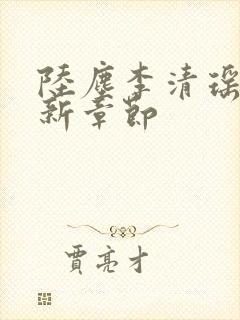 陸塵李清瑤
新章節
賈亮才